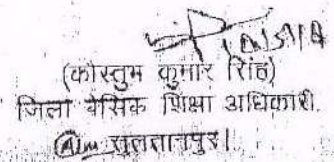 (कौस्तुभ कुमार सिंह)
जिला बेसिक शिक्षा अधिकारी
सुलतानपुर।